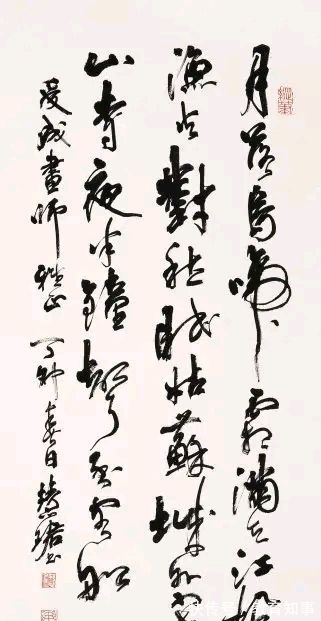 月落烏啼霜滿天江楓
漁火對愁眠姑蘇城外寒
山寺夜半鐘聲到客船
愛成畫師雅正 丁卯春日慧珺書
快传号